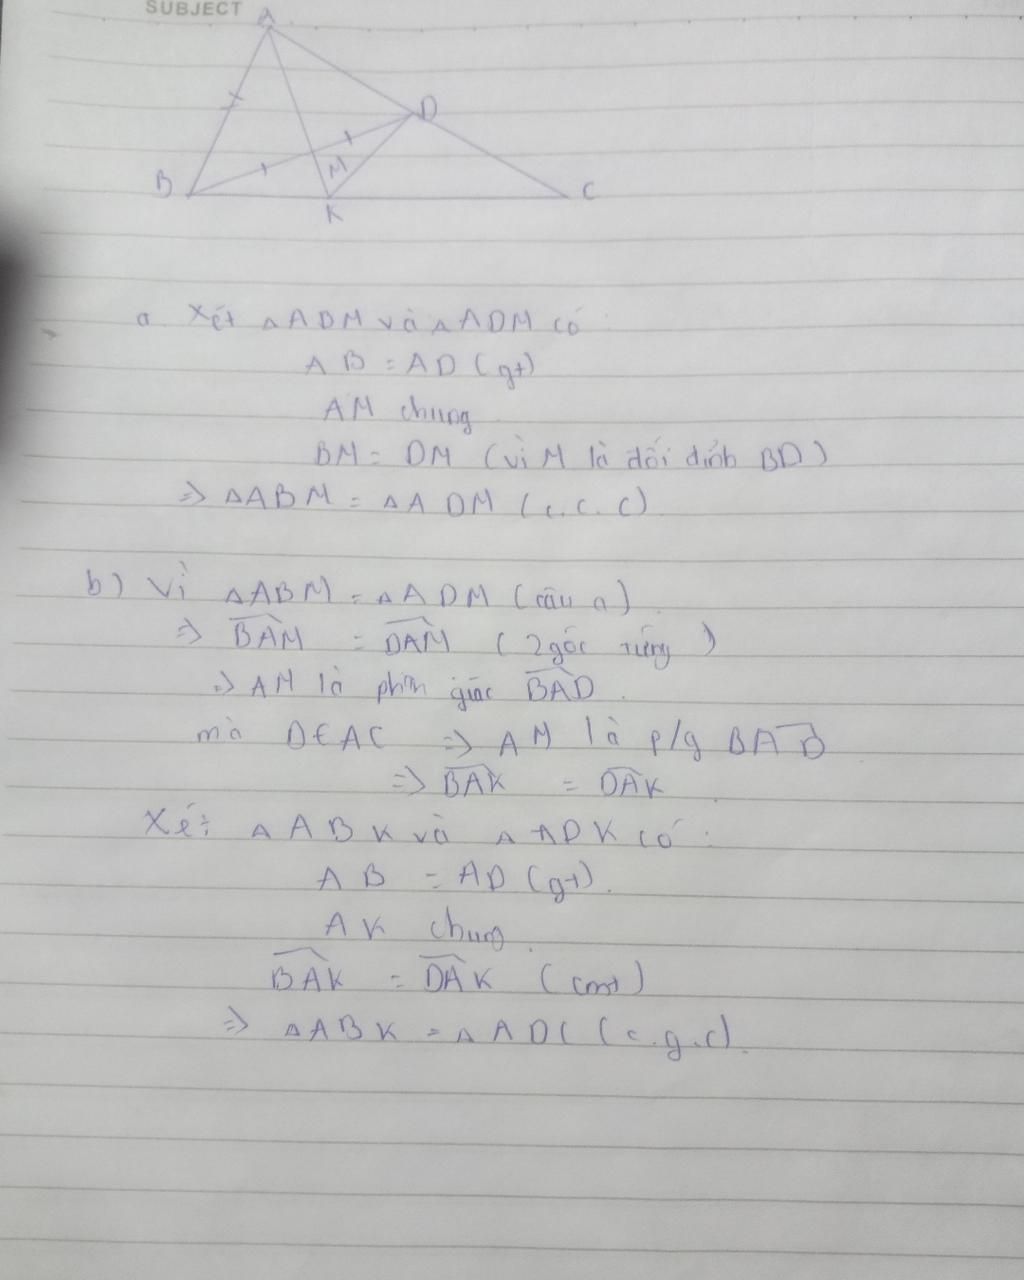 SUBJECT
A
D
M
B
C
K
a. Xét △ADM và △ADM có :
AB = AD (gt)
AM chung
BM = DM (vì M là đối đỉnh BD)
=> △ABM = △ADM (c.c.c)
b) Vì △ABM = △ADM (câu a)
=> BAM = DAM (2 góc tứng)
=> AM là phân giác BAD.
mà D∈AC => AM là p/g BAD
=> BAK = DAK
Xét △ABK và △ADK có :
AB = AD (gt).
AK chung.
BAK = DAK (cmt)
=> △ABK = △ADC (c.g.c).